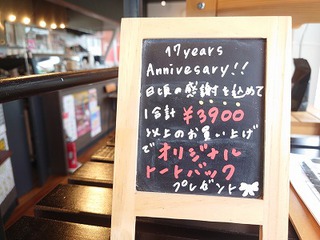 17years
Annivesary!!
日頃の感謝を込めて
1会計 ¥3900
以上のお買い上げ
で オリジナル
トートバック
プレゼント